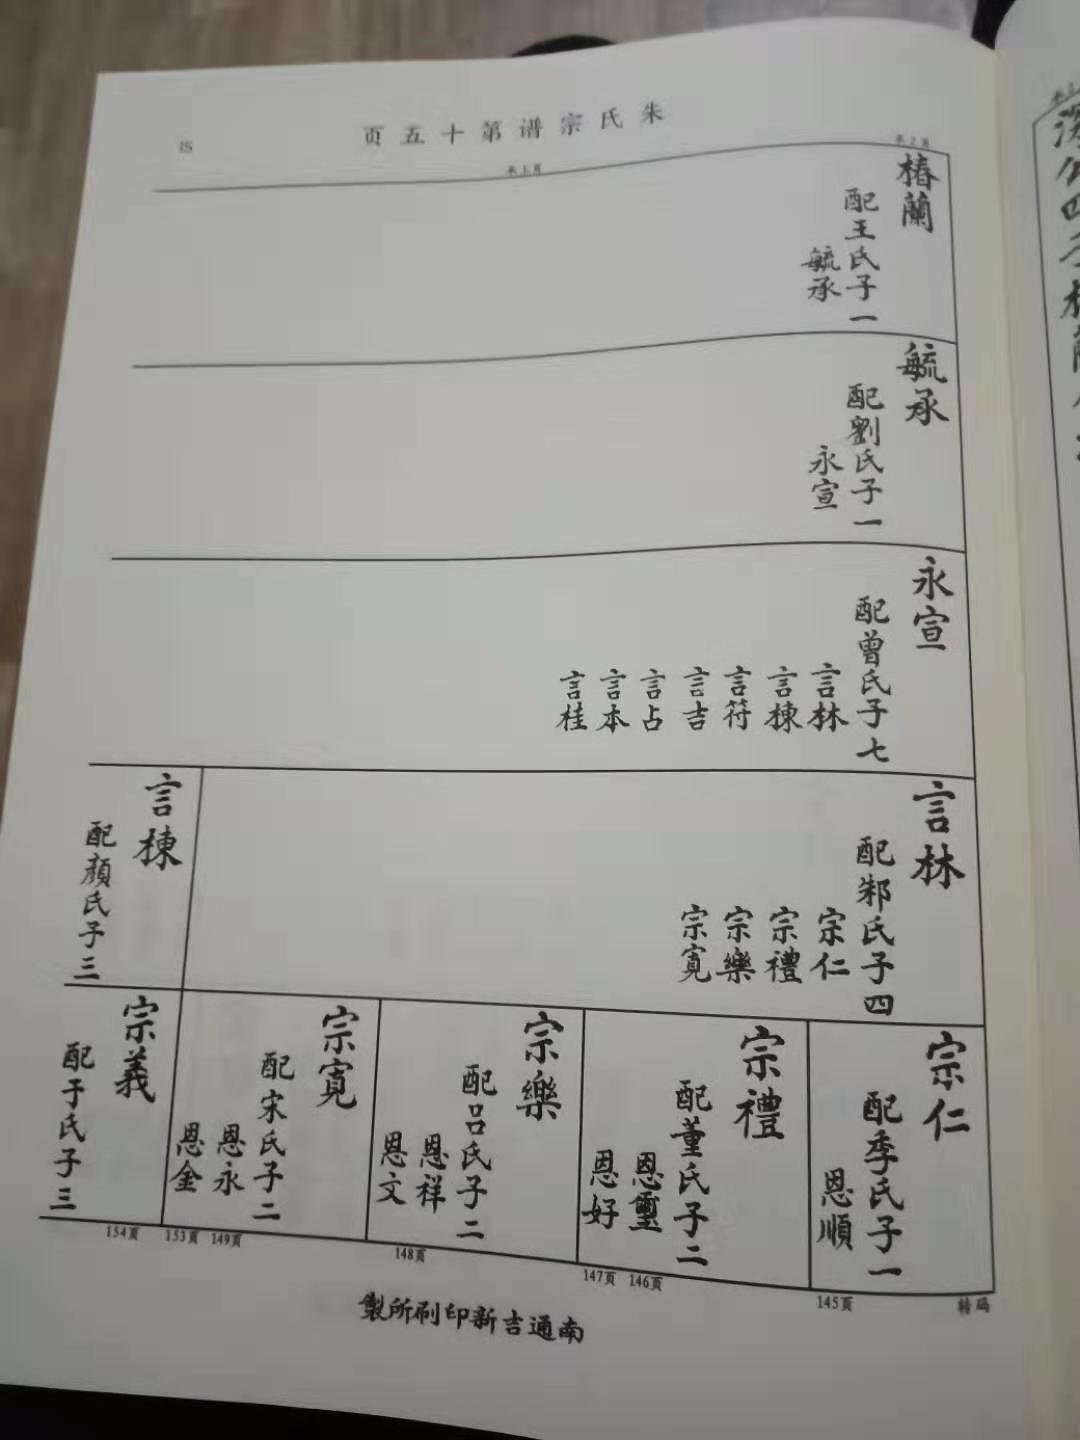 朱氏宗谱第十五页
15
承2頁
承1頁
椿蘭
配王氏子一
毓承
毓承
配劉氏子一
永宣
永宣
配曾氏子七
言林
言棟
言符
言吉
言占
言本
言桂
言林
配邾氏子四
宗仁
宗禮
宗樂
宗寬
言棟
配顏氏子三
宗仁
配季氏子一
恩順
宗禮
配董氏子二
恩璽
恩好
宗樂
配呂氏子二
恩祥
恩文
宗寬
配宋氏子二
恩永
恩金
宗義
配于氏子三
轉碼
145頁
146頁
147頁
148頁
149頁
153頁
154頁
南通吉新印刷所製